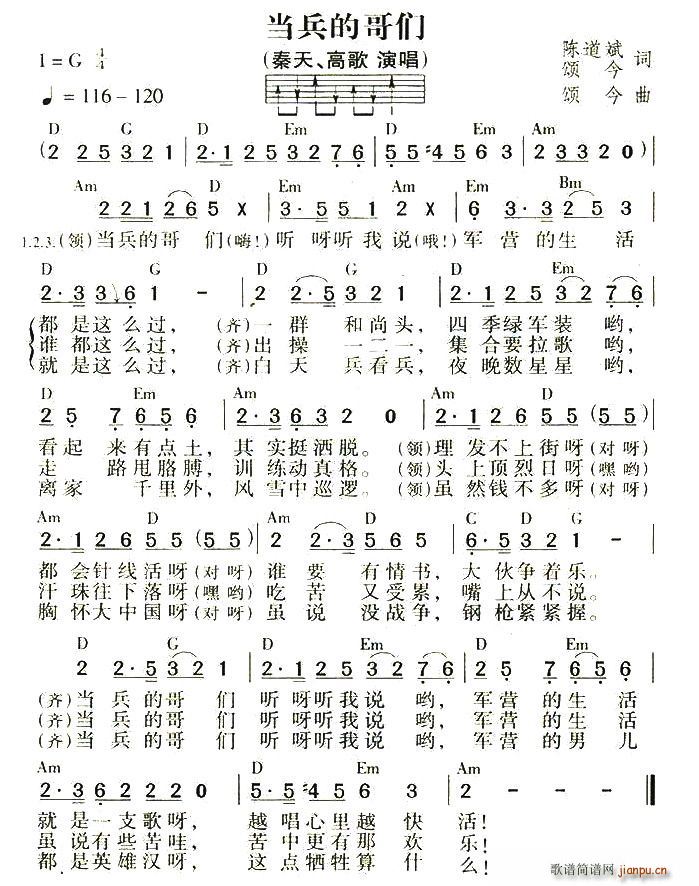 当兵的哥们
1=G 4/4 (秦天、高歌 演唱) 陈道斌 词
♩=116-120 颂今 曲
D G D Em D Em Am
(2 2 5 3 2 1 | 2·1 2 5 3 2 7 6 | 5·5 #4 5 6 3 | 2 3 3 2 0)
Am D Em Am Em Bm
2 2 1 2 6 5 X | 3·5 5 5 1 2 X | 6 3·3 2 5 3
1.2.3.(领)当兵的哥 们(嗨!)听 呀听我说(哦!)军 营的生 活
D G D Em
2·3 3 6 1 - | 2 2·5 3 2 1 | 2·1 2 5 3 2 7 6
都 是这么过, (齐)一 群 和尚头, 四 季绿军装 哟,
谁 都这么过, (齐)出 操 一二一, 集 合要拉歌 哟,
就 是这么过, (齐)白 天 兵看兵, 夜 晚数星星 哟,
D Em Am D
2 5 7 6 5 6 | 2·3 6 3 2 0 | 2·1 2 6 5 5 (5 5)
看起 来有点土, 其 实挺洒脱。 (领)理 发不上街呀(对呀)
走 路甩胳膊, 训 练动真格。 (领)头 上顶烈日呀(嘿哟)
离家 千里外, 风 雪中巡逻。 (领)虽 然钱不多呀(对呀)
Am D Am D C D G
2·1 2 6 5 5 (5 5) | 2 2·3 5 6 5 | 6·5 3 2 1 -
都 会针线活呀(对呀)谁 要 有情书, 大 伙争着乐。
汗 珠往下落呀(嘿哟)吃 苦 又受累, 嘴 上从不说。
胸 怀大中国呀(对呀)虽 说 没战争, 钢 枪紧紧握。
D G D Em D Em
2 2·5 3 2 1 | 2·1 2 5 3 2 7 6 | 2 5 7 6 5 6
(齐)当 兵 的 哥 们 听 呀听我说 哟, 军 营的生 活
(齐)当 兵 的 哥 们 听 呀听我说 哟, 军 营的生 活
(齐)当 兵 的 哥 们 听 呀听我说 哟, 军 营的男 儿
Am D Em Am
2·3 6 2 2 2 0 | 5·5 #4 5 6 3 | 2 - - -
就 是一支歌呀, 越 唱心里越 快 活!
虽 说有些苦哇, 苦 中更有那 欢 乐!
都 是英雄汉呀, 这 点牺牲算 什 么!
歌谱简谱网
jianpu.cn